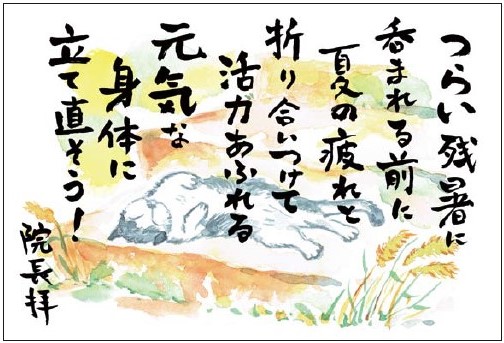 つらい残暑に
呑まれる前に
夏の疲れと
折り合いつけて
活力あふれる
元気な
身体に
立て直そう！
院長拝